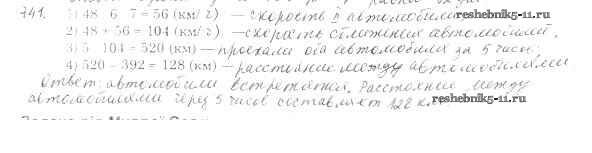 741. 1) 48 : 6 · 7 = 56 (км/г) — скорость II автомобиля
reshebnik5-11.ru
2) 48 + 56 = 104 (км/г) — скорость сближения автомобилей.
3) 5 · 104 = 520 (км) — проехали оба автомобиля за 5 часов;
4) 520 - 392 = 128 (км) — расстояние между автомобилями
Ответ: автомобили встретятся. Расстояние между
автомобилями через 5 часов составляет 128 км.
reshebnik5-11.ru